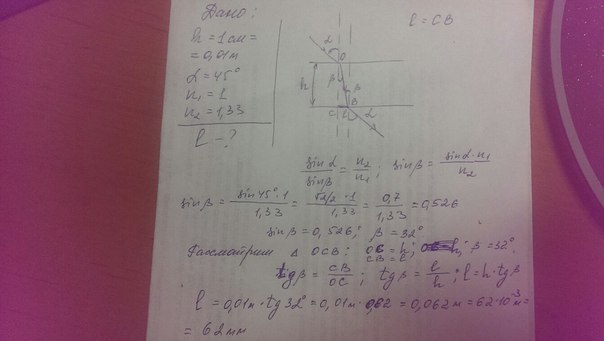 Дано:
h = 1 см =
= 0,01 м
α = 45°
n₁ = 1
n₂ = 1,33
l - ?
l = CB
α
O
h
β
β
C
l
B
α
sinα/sinβ = n₂/n₁; sinβ = sinα·n₁/n₂
sinβ = sin45°·1/1,33 = √2/2·1/1,33 = 0,7/1,33 = 0,526
sinβ = 0,526; β = 32°
Рассмотрим Δ OCB: OC = h; β = 32°
CB = l
tgβ = CB/OC; tgβ = l/h; l = h·tgβ
l = 0,01м·tg32° = 0,01м·0,62 = 0,062м = 62·10⁻³м =
= 62мм